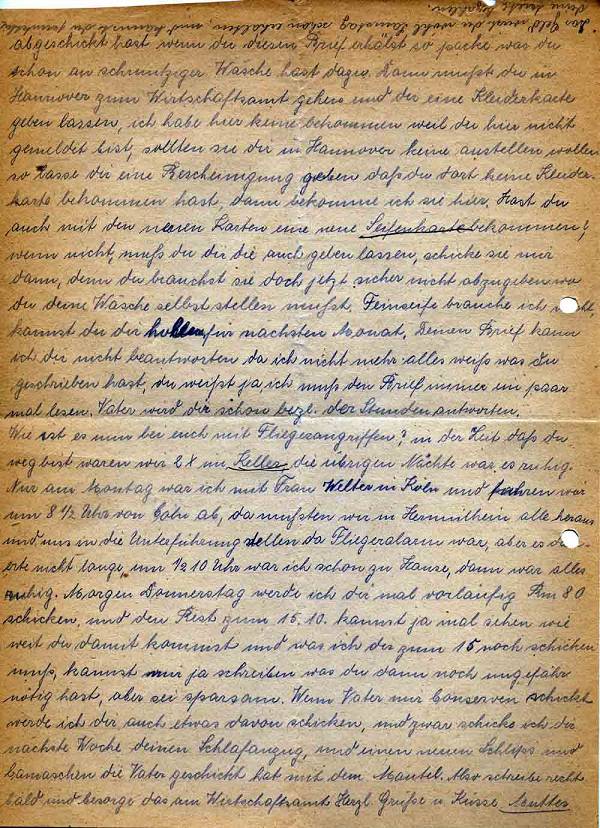 abgeschickt hast wenn du diesen Brief erhälst so packe was du
schon an schmutziger Wäsche hast dazu. Dann mußt du in
Hannover zum Wirtschaftsamt gehen und dir eine Kleiderkarte
geben lassen, ich habe hier keine bekommen weil du hier nicht
gemeldet bist, sollten sie dir in Hannover keine austellen wollen
so lasse dir eine Bescheinigung geben daß du dort keine Kleider-
karte bekommen hast, dann bekomme ich sie hier. Hast du
auch mit den neuen Karten eine neue Seifenkarte bekommen?
wenn nicht, muß du dir die auch geben lassen, schicke sie mir
dann, denn du brauchst sie doch jetzt sicher nicht abzugeben wo
du deine Wäsche selbst stellen mußt. Feinseife brauche ich
kannst du dir hohlen für nächsten Monat. Deinen Brief kann
ich dir nicht beantworten da ich nicht mehr alles weiß was du
geschrieben hast, du weißt ja, ich muß den Brief immer ein paar
mal lesen. Vater wird dir schon bezl. der Stunden antworten.
Wie ist es nun bei euch mit Fliegerangriffen? in der Zeit daß du
weg bist waren wir 2 x im Keller, die übrigen Nächte war es ruhig.
Nur am Montag war ich mit Frau Welter in Köln und fuhren wir
um 8 1/2 Uhr von Cöln ab, da mußten wir in Hermülheim alle heraus
und uns in die Unterführung stellen da Fliegeralarm war, aber es dau-
erte nicht lange, um 1/2 10 Uhr war ich schon zu Hause, dann war alles
ruhig. Morgen Donnerstag werde ich dir mal vorläufig Rm 80
schicken, und den Rest zum 15.10. kannst ja mal sehen wie
weit du damit kommst und was ich dir zum 15 noch schicken
muß, kannst mir ja schreiben was du dann noch ungefähr
nötig hast, aber sei sparsam. Wenn Vater nur Conserven schickt
werde ich dir auch etwas davon schicken, und zwar schicke ich dir
nächste Woche deinen Schlafanzug, und einen neuen Schlips und
Gamaschen die Vater geschickt hat mit dem Mantel. Also schreibe recht
bald und besorge das am Wirtschaftsamt Herzl. Grüße u. Küsse Mutter